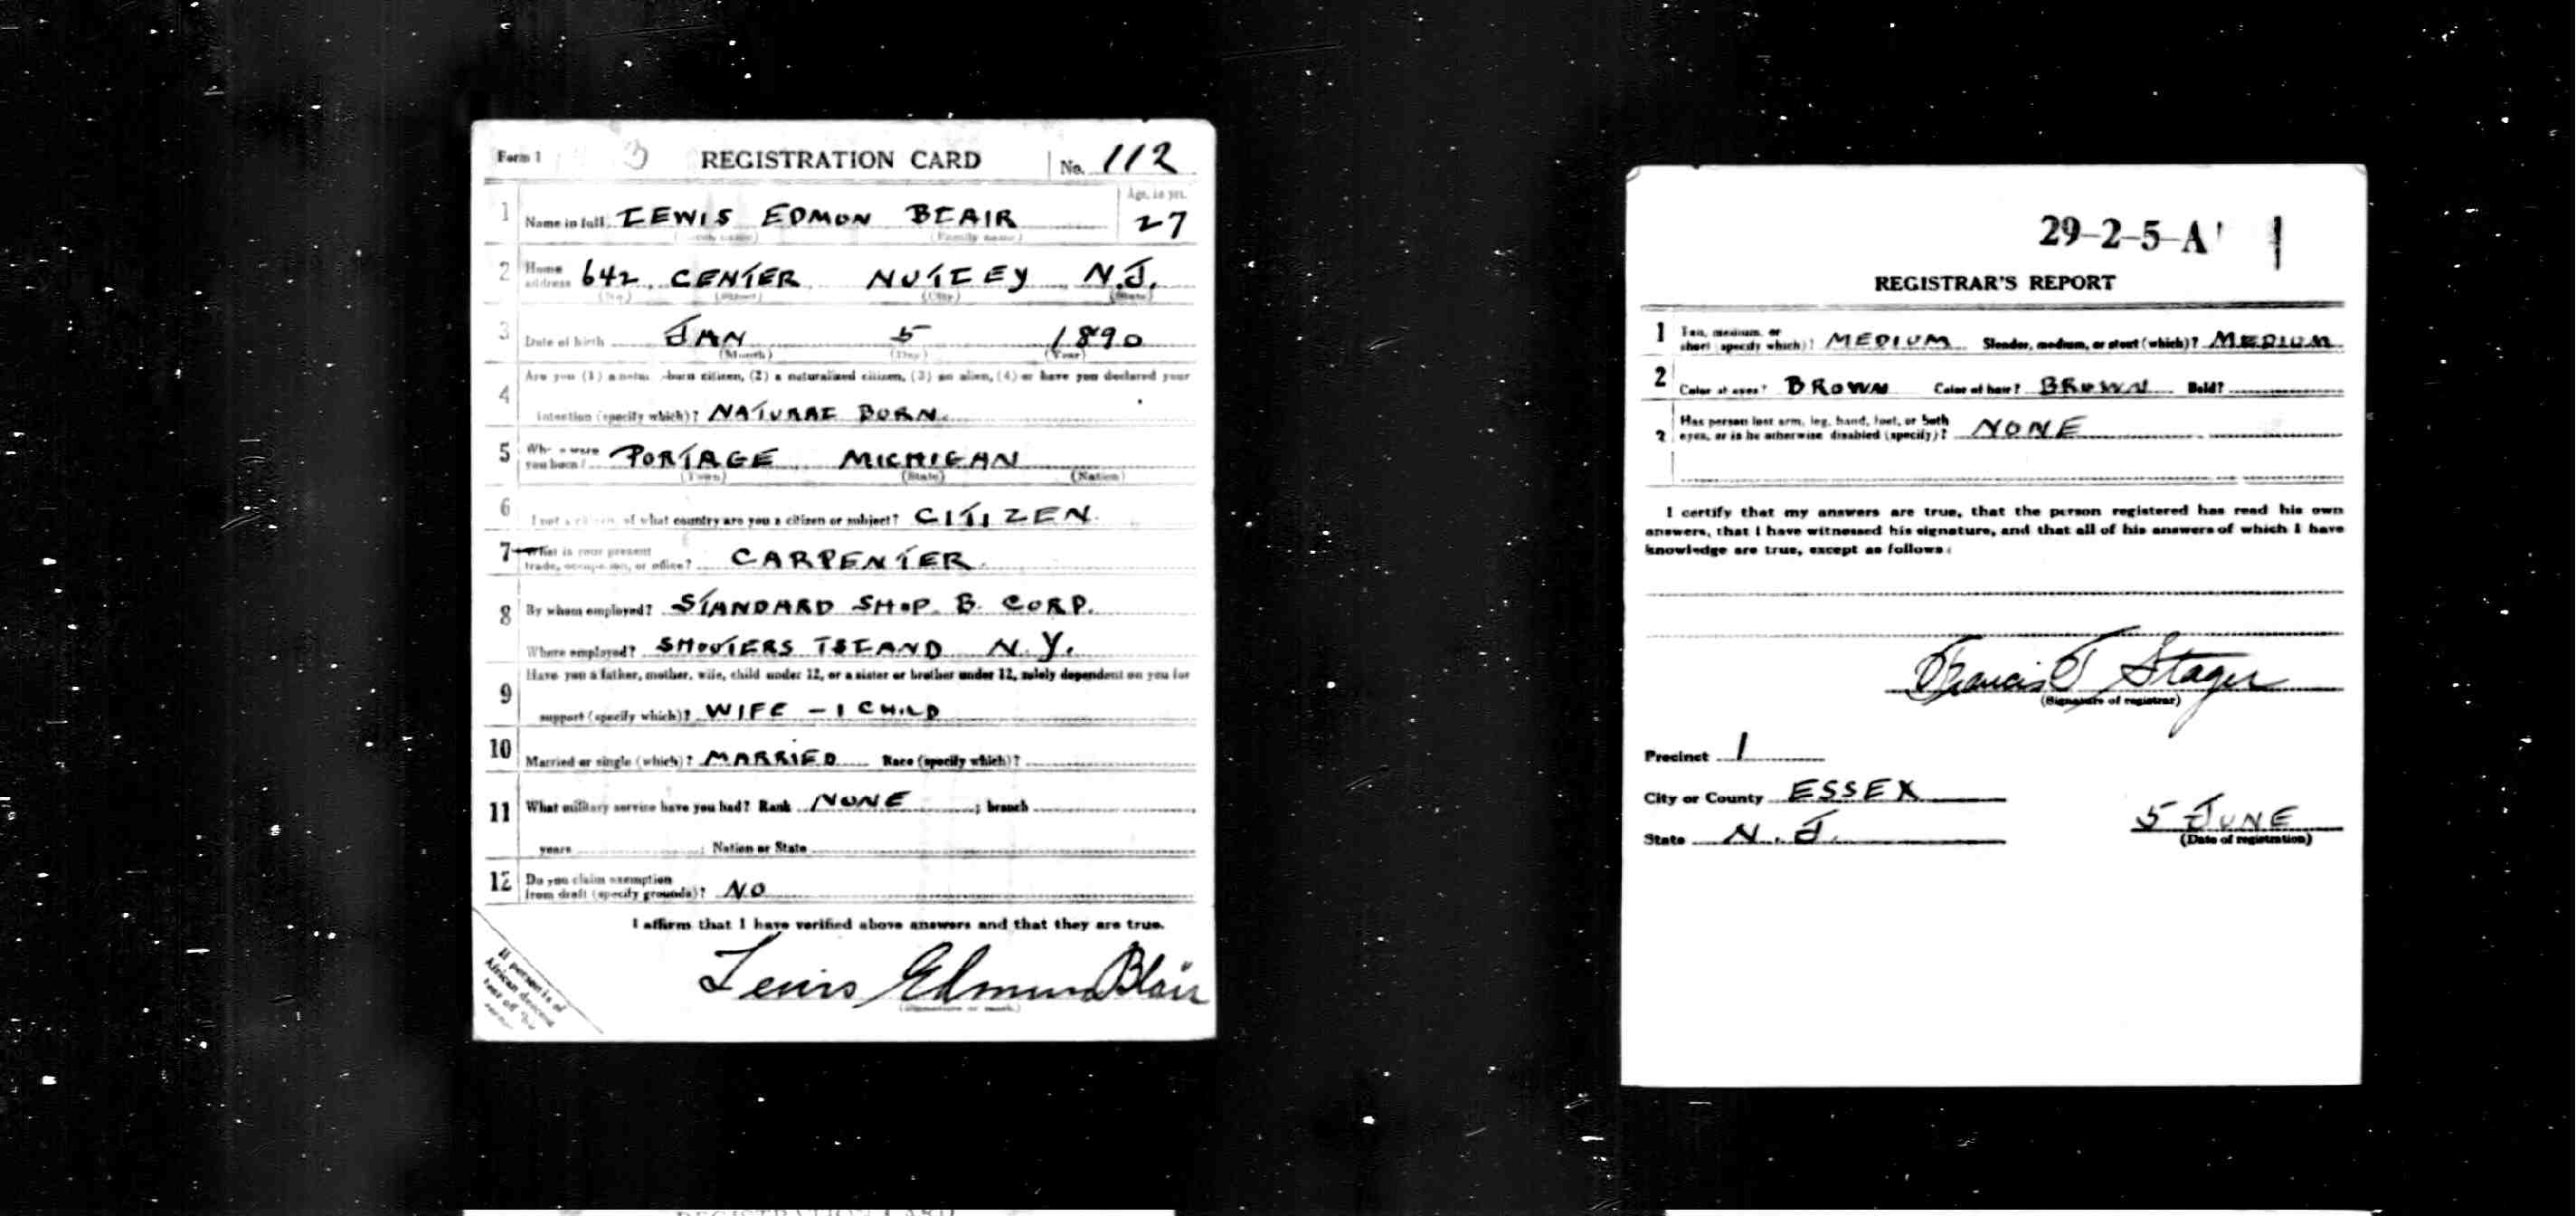 Form 1 3 REGISTRATION CARD No. 112
1 Name in full LEWIS EDMON BLAIR Age, in yrs. 27
(Family name)
2 Home address 642 CENTER NUTLEY N.J.
(No.) (Street) (City) (State)
3 Date of birth JAN 5 1890
(Month) (Day) (Year)
4 Are you (1) a natural-born citizen, (2) a naturalized citizen, (3) an alien, (4) or have you declared your
intention (specify which)? NATURAL BORN.
5 Where were you born? PORTAGE MICHIGAN
(Town) (State) (Nation)
6 If not a citizen, of what country are you a citizen or subject? CITIZEN.
7 What is your present
trade, occupation, or office? CARPENTER.
8 By whom employed? STANDARD SHOP. B. CORP.
Where employed? SHOOTERS ISLAND N.Y.
9 Have you a father, mother, wife, child under 12, or a sister or brother under 12, solely dependent on you for
support (specify which)? WIFE - 1 CHILD
10 Married or single (which)? MARRIED Race (specify which)?
11 What military service have you had? Rank NONE ; branch
years ; Nation or State
12 Do you claim exemption
from draft (specify grounds)? NO
I affirm that I have verified above answers and that they are true.
Lewis Edmun Blair
(Signature or mark)
If person is of
African descent
tear off this
29-2-5-A 1
REGISTRAR'S REPORT
1 Tall, medium, or
short (specify which)? MEDIUM Slender, medium, or stout (which)? MEDIUM
2 Color of eyes? BROWN Color of hair? BROWN Bald?
3 Has person lost arm, leg, hand, foot, or both
eyes, or is he otherwise disabled (specify)? NONE
I certify that my answers are true, that the person registered has read his own
answers, that I have witnessed his signature, and that all of his answers of which I have
knowledge are true, except as follows:
Francis T Stager
(Signature of registrar)
Precinct 1
City or County ESSEX
State N.J.
5 JUNE
(Date of registration)
REGISTRATION CARD